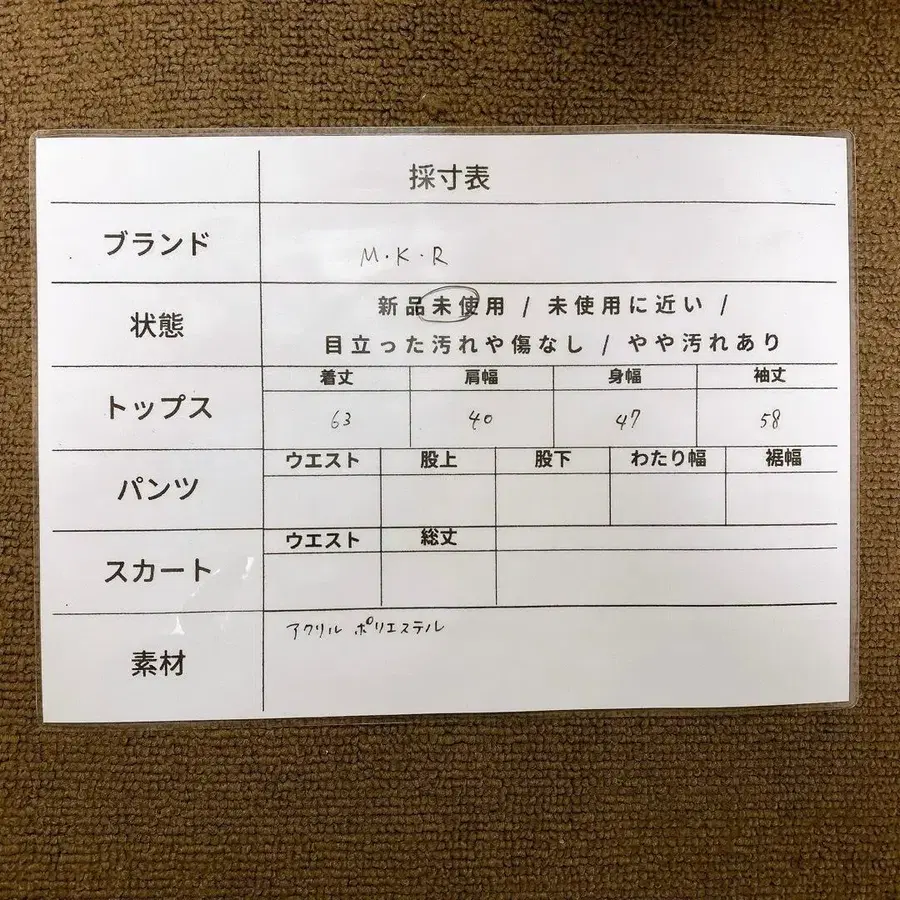 採寸表
ブランド
M・K・R
状態
新品未使用 / 未使用に近い /
目立った汚れや傷なし / やや汚れあり
トップス
着丈 肩幅 身幅 袖丈
63 40 47 58
パンツ
ウエスト 股上 股下 わたり幅 裾幅
スカート
ウエスト 総丈
素材
アクリル ポリエステル